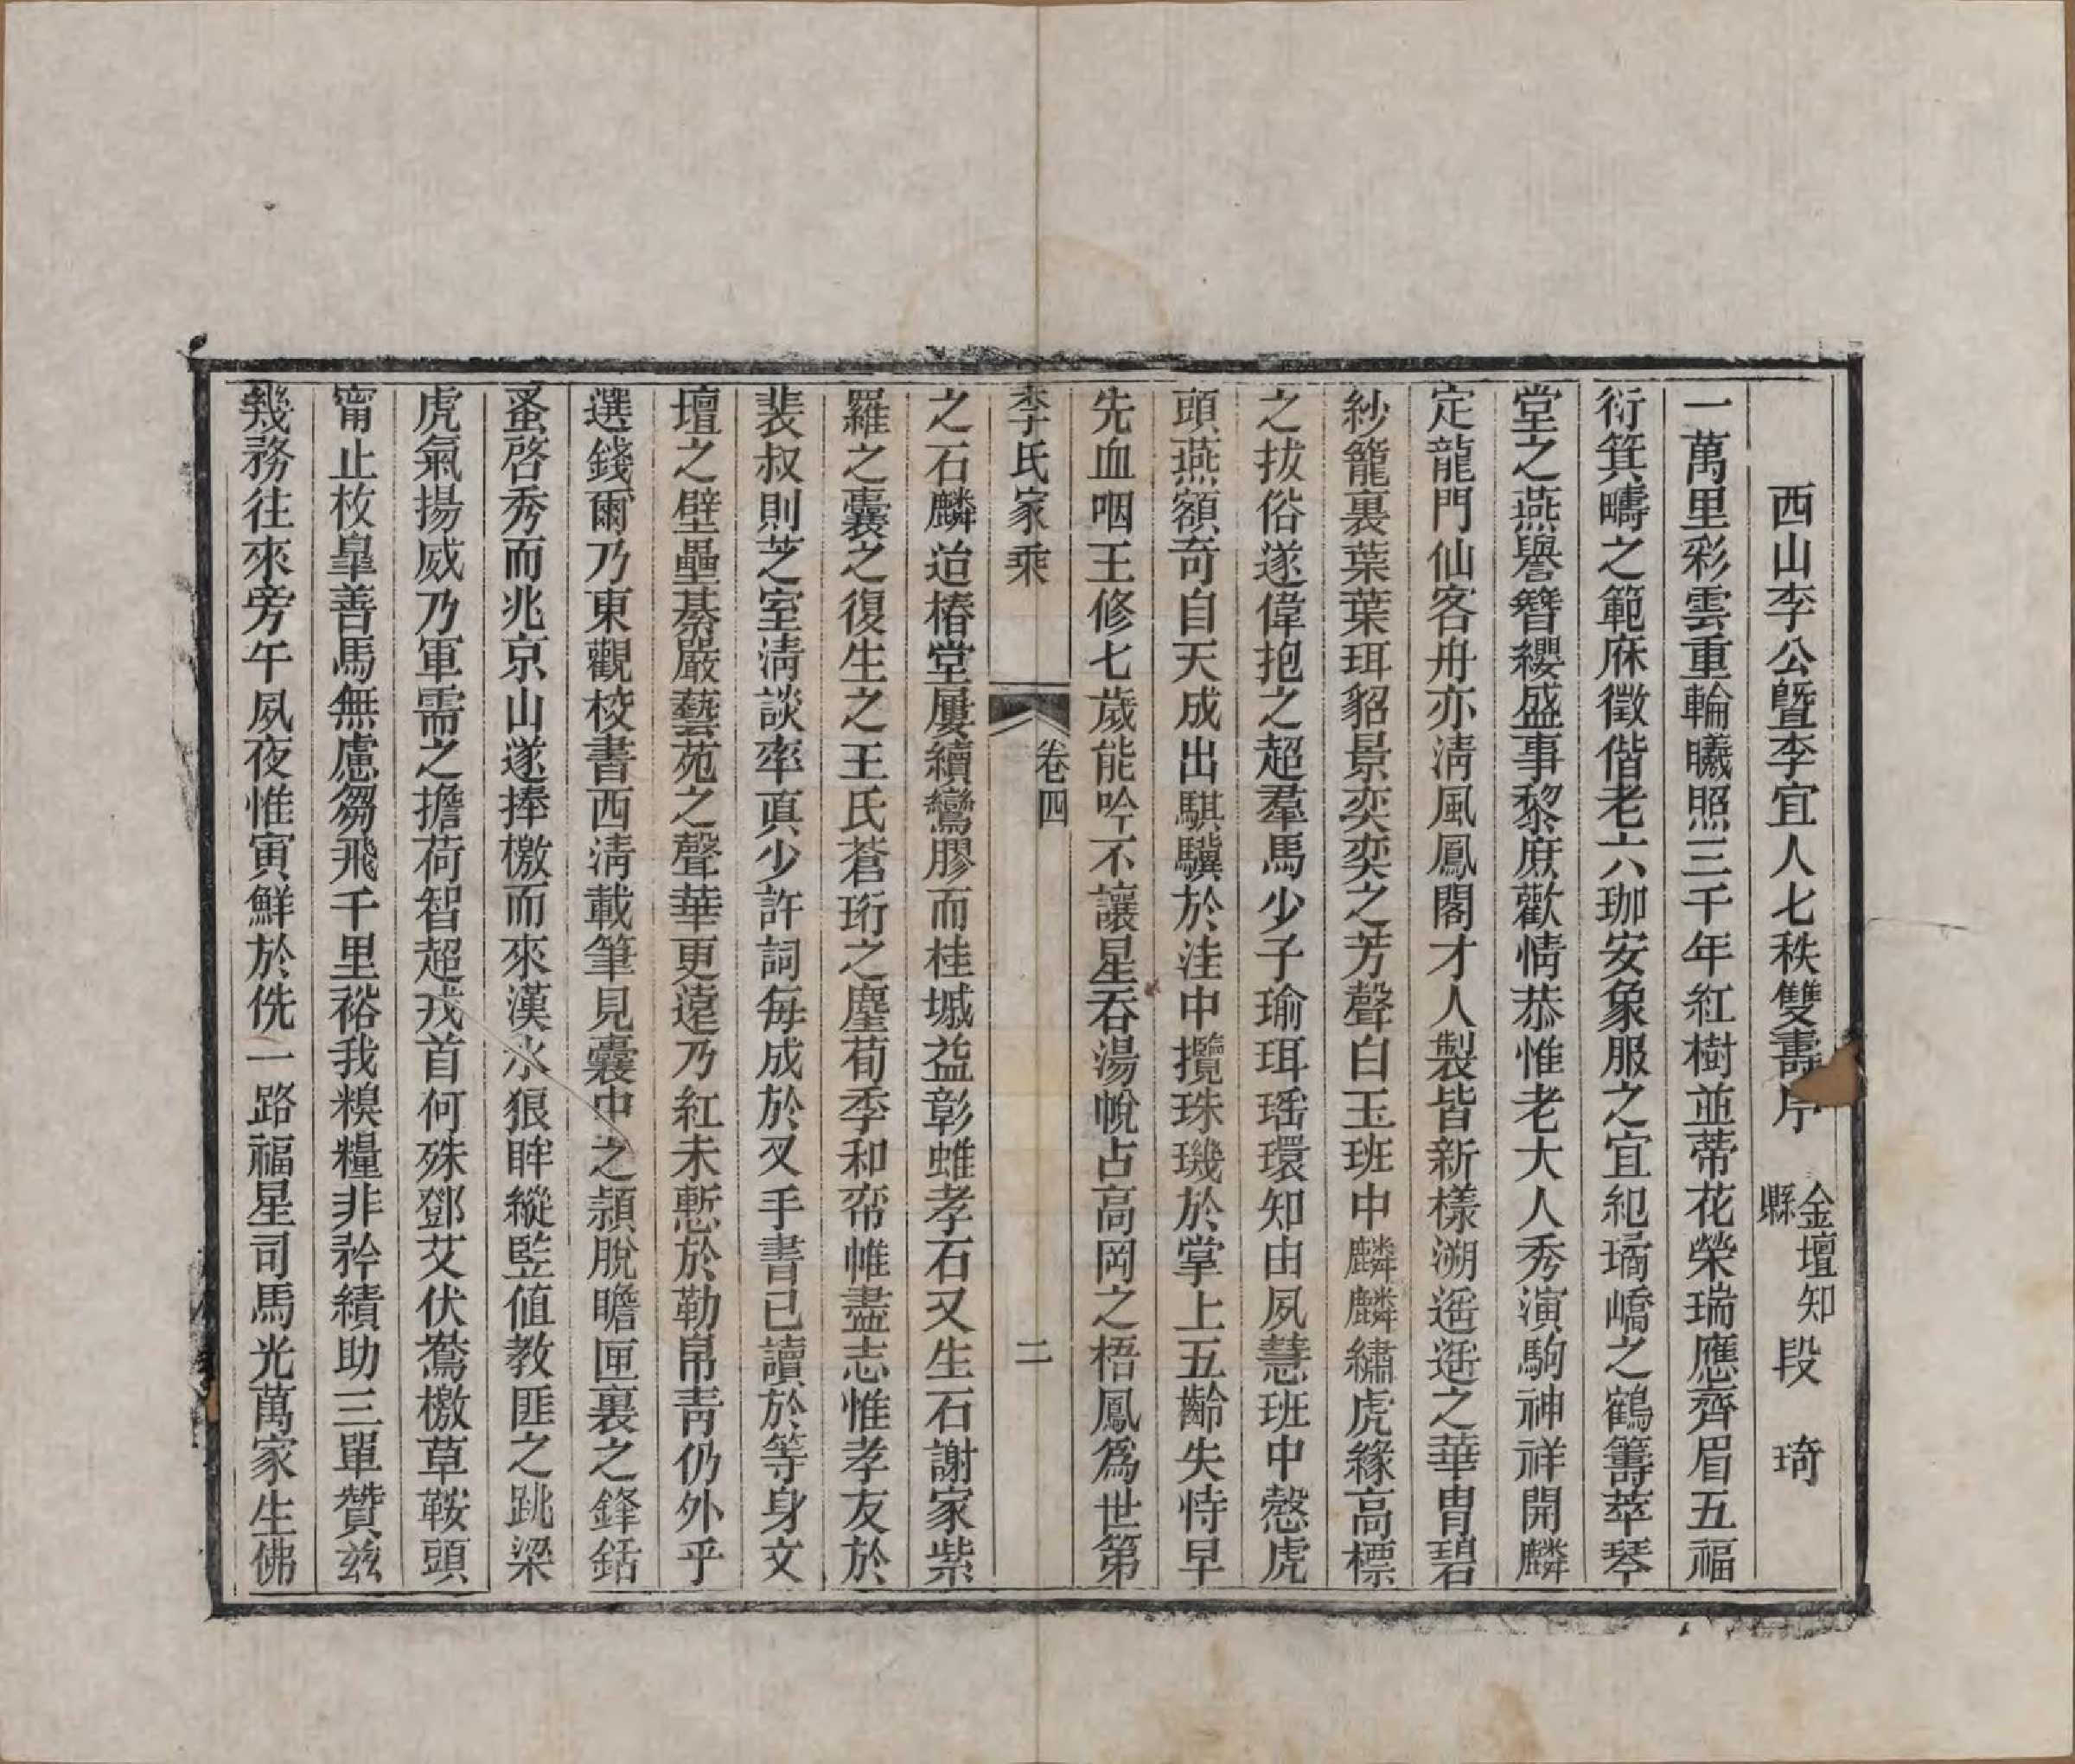 西山李公曁李宜人七秩雙壽序 金壇知縣 段 琦
一萬里彩雲重輪曦照三千年紅樹並蒂花榮瑞應齊眉五福
衍箕疇之範庥徵偕老六珈安象服之宜紀瑀嶠之鶴籌萃琴
堂之燕譽簪纓盛事黎庶歡情恭惟老大人秀演駒神祥開麟
定龍門仙客舟亦淸風鳳閣才人製皆新樣溯遥遥之華冑碧
紗籠裏葉葉珥貂景奕奕之芳聲白玉班中麟麟繡虎緣高標
之拔俗遂偉抱之超羣馬少子瑜珥瑶環知由夙慧班中愨虎
頭燕額奇自天成出騏驥於洼中攬珠璣於掌上五齡失恃早
先血咽王修七歲能吟不讓星吞湯帨占高岡之梧鳳爲世第
李氏家乘 卷四 二
之石麟迨椿堂屢續鸞膠而桂墄益彰雖孝石又生石謝家紫
羅之囊之復生之王氏蒼珩之塵荀季和帟帷盡志惟孝友於
裴叔則芝室淸談率眞少許詞每成於叉手書已讀於等身文
壇之壁壘綦嚴藝苑之聲華更遠乃紅未慙於勒帛靑仍外乎
選錢爾乃東觀校書西淸載筆見囊中之頴脫瞻匣裏之鋒銛
蚤啓秀而兆京山遂捧檄而來漢水狼眸縱監値教匪之跳梁
虎氣揚威乃軍需之擔荷智超戎首何殊鄧艾伏鶩檄草鞍頭
甯止枚皐善馬無慮芻飛千里裕我糗糧非矜績助三單贊兹
幾務往來旁午夙夜惟寅鮮於侁一路福星司馬光萬家生佛